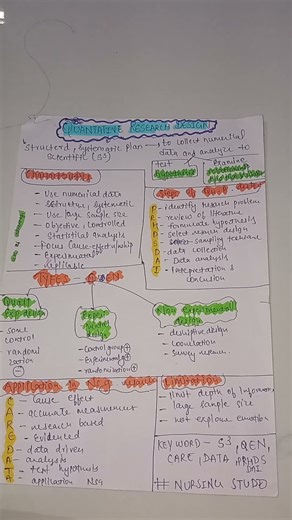 QUANTATIVE RESEARCH DESIGN
Structerd, systematic plan → to collect numerical
scientific (S³) data and analyze to
Test Examine
Characteristics
- Use numerical data
- structurs, systematic
- Use large sample size
- Objective, controlled
- Statistical analysis
- Focus cause-effect relationship
- Experimental
- replicable
Steps of Quant. design
P - identify research problem
R - review of literature
H - formulate hypothesis
D - select research design
S - sampling technique
D - data collection
A - Data analysis
I - Interpretation &
conclusion
TYPES - Q-E-N
Quasi
Exp. design
- some
control
- randomi
zation
Experi
mental design
- control group (+)
- Experimental (+)
- randomization (+)
Non Experimental
design
- descriptive design
- Correlation
- Survey research
Application in Nsg
C - Cause effect
A - accurate measurement
R - research based
E - Evidenced
D - data driven
A - analysis
T - test hypothesis
A - application NSG
Limitation
- limit depth of information
- large sample size
- not explore emotion
KEY WORD - S³, QEN,
CARE, DATA, PRHDS
DAI
# NURSING STUDO